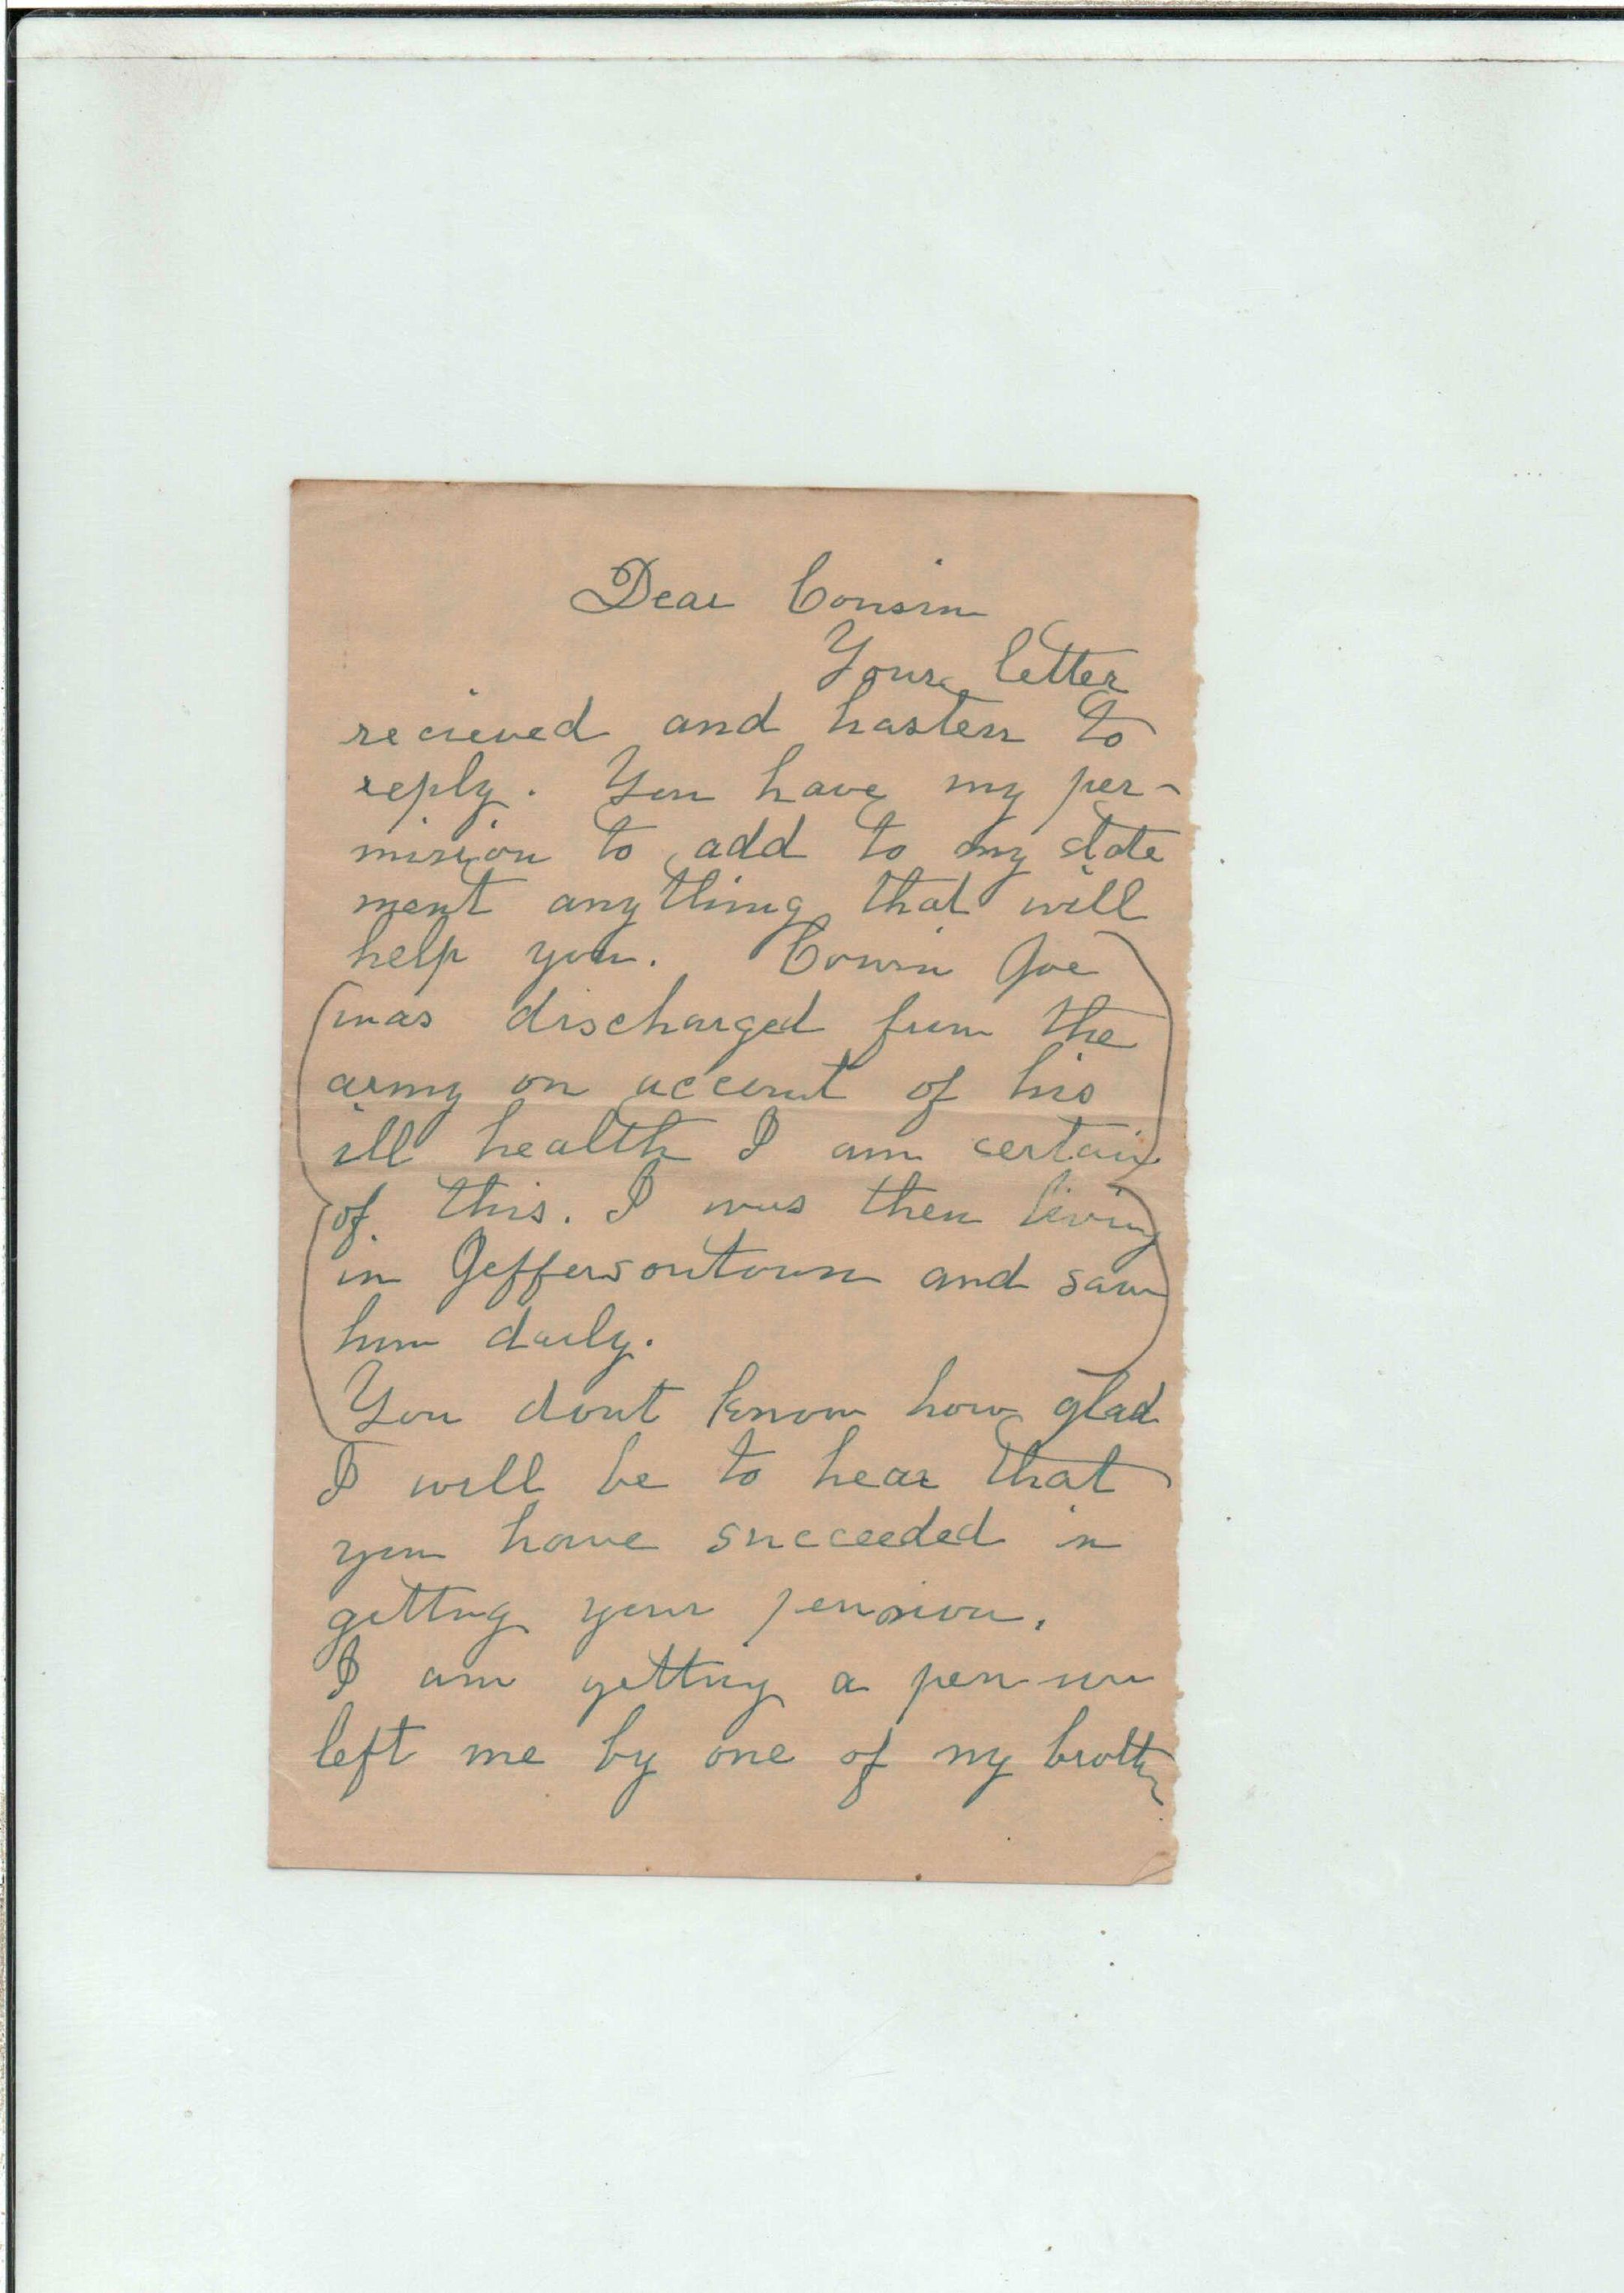 Dear Cousin
Your letter
recieved and hasten to
reply. You have my per-
mission to add to my state
ment anything that will
help you. Cousin Joe
was discharged from the
army on account of his
ill health I am certain
of this. I was then living
in Jeffersontown and saw
him daily.
You dont know how glad
I will be to hear that
you have succeeded in
getting your pension.
I am getting a pension
left me by one of my brother